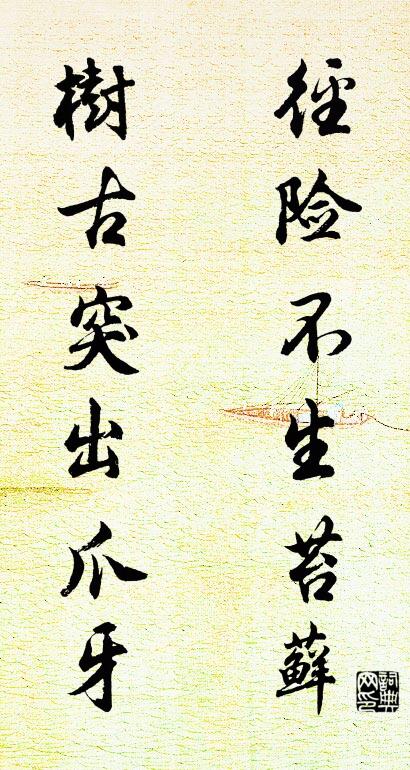 徑险不生苔蘚
樹古突出爪牙
詞典网印